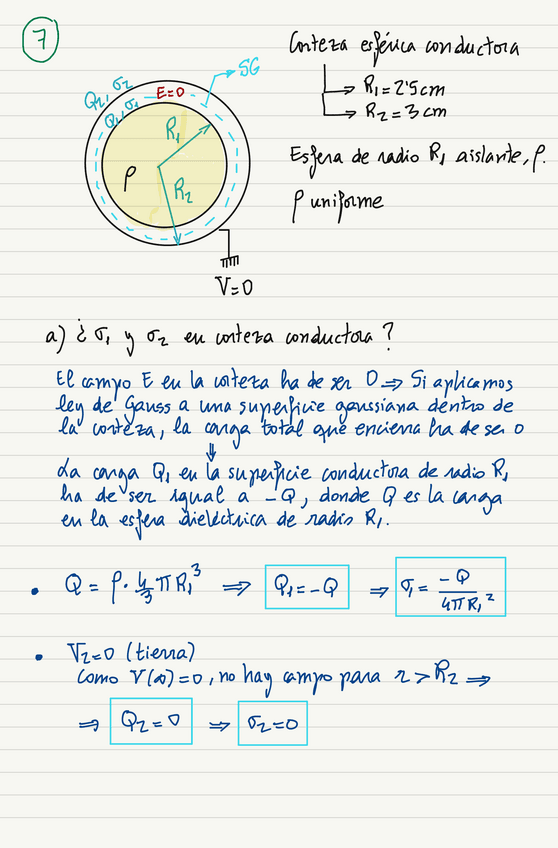 7
Corteza esférica conductora
→ R₁ = 2'5 cm
→ R₂ = 3 cm
Esfera de radio R₁ aislante, ρ.
ρ uniforme
SG
Q₂, σ₂
Q₁, σ₁
E=0
R₁
ρ
R₂
V=0
a) ¿ σ₁ y σ₂ en corteza conductora ?
El campo E en la corteza ha de ser 0 ⇒ Si aplicamos
ley de Gauss a una superficie gaussiana dentro de
la corteza, la carga total que encierra ha de ser 0
⇓
La carga Q₁ en la superficie conductora de radio R₁
ha de ser igual a -Q, donde Q es la carga
en la esfera dieléctrica de radio R₁.
• Q = ρ · 4/3 π R₁³ ⇒ Q₁ = -Q ⇒ σ₁ = -Q / 4πR₁²
• V₂=0 (tierra)
como V(∞)=0, no hay campo para r > R₂ ⇒
⇒ Q₂ = 0 ⇒ σ₂ = 0